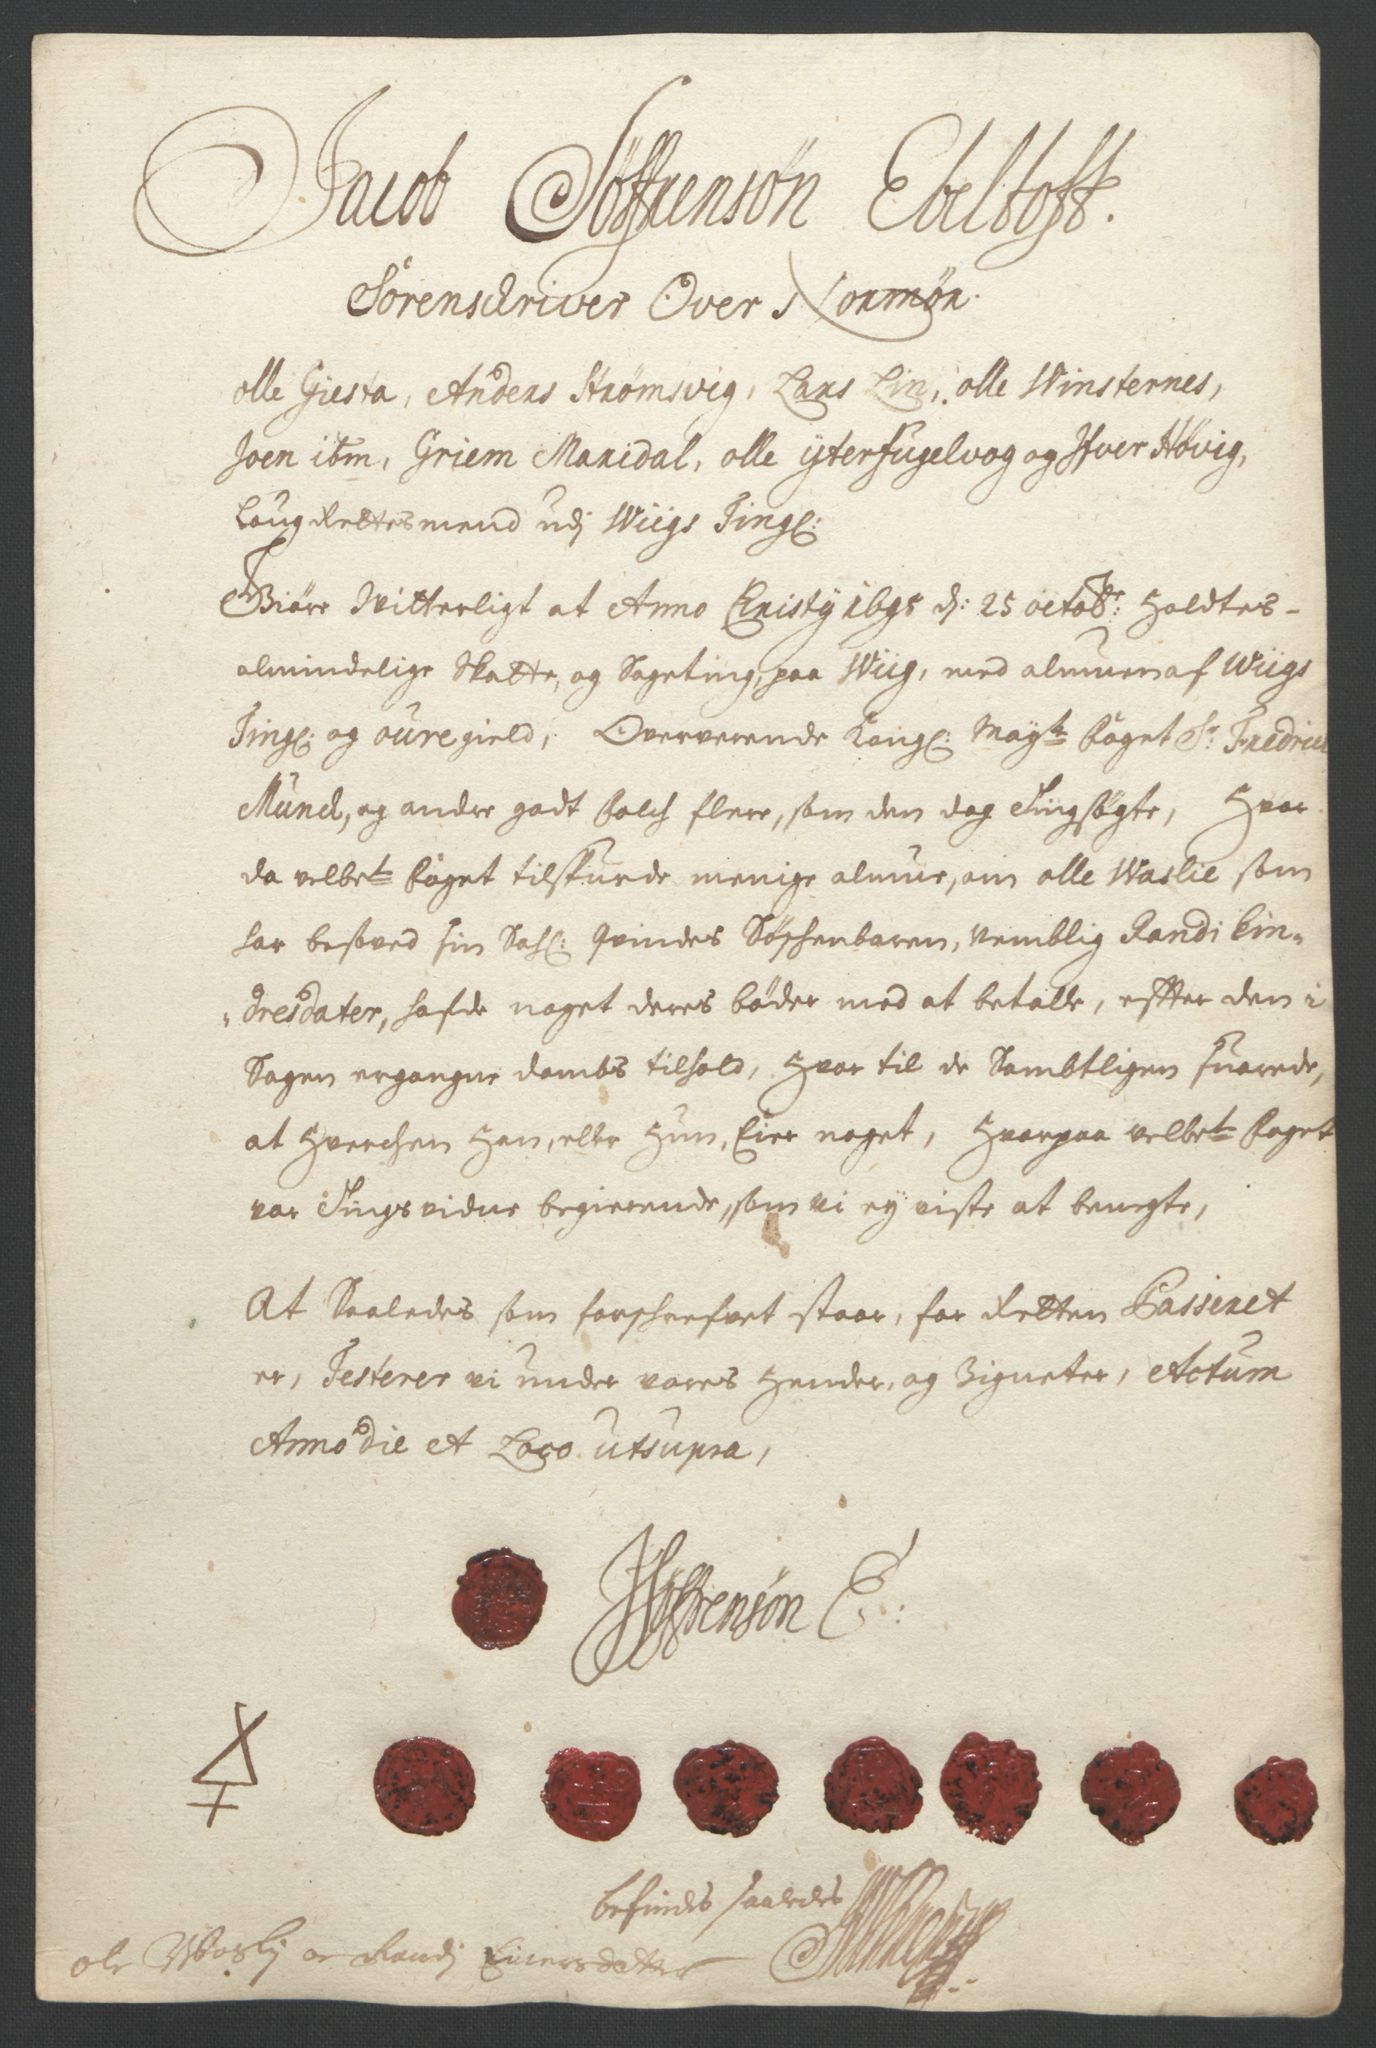 Jacob Søffrensøn Ebeltoft.
Sorenschriver Over Normør.
olle Giesta, Anders Strømsvig, Lars Lin, olle Winsternes,
Joen ibm, Griem Maridal, olle ytterfugelvog og Ifver Høvig,
Laug Rettesmend udj Wiigs Tingl:
Giøre Vitterligt at Anno Christy 1695 d: 25 octobr: Holdtes
almindelige Skatte, og Sageting, paa Wiig, med almuen af Wiigs
Tingl: og øuregield, Oververende Kongl: Mayts Foget Sr Fredrich
Munch, og andre godt Folch flere, som den dag Tingsøgte, Hvor
da velbete Foget tilspurde menige almue, om olle Waslie som
har besoved sin Sahl: qvindes Søschenbaren, Nemblig Randi Ein-
dresdater, hafde noget deres bøder med at betalle, effter den i
Sagen ergangne dombs tilhold, Hvor til de Sambtligen svarede,
at Hverchen Han, eller Hun, Eier noget, Hvorpaa velbete Foget
var Tings vidne begierende, som vi ey viste at benegte,
At Saaledes som forschrefvet staar, for Retten Passeret
er, Testerer vi under vores Hender, og Zigneter, Actum
Anno die et Loco utsupra,
JSøffrensøn E:
befindes saaledes
ole Woslj oc Randj Einersdatter